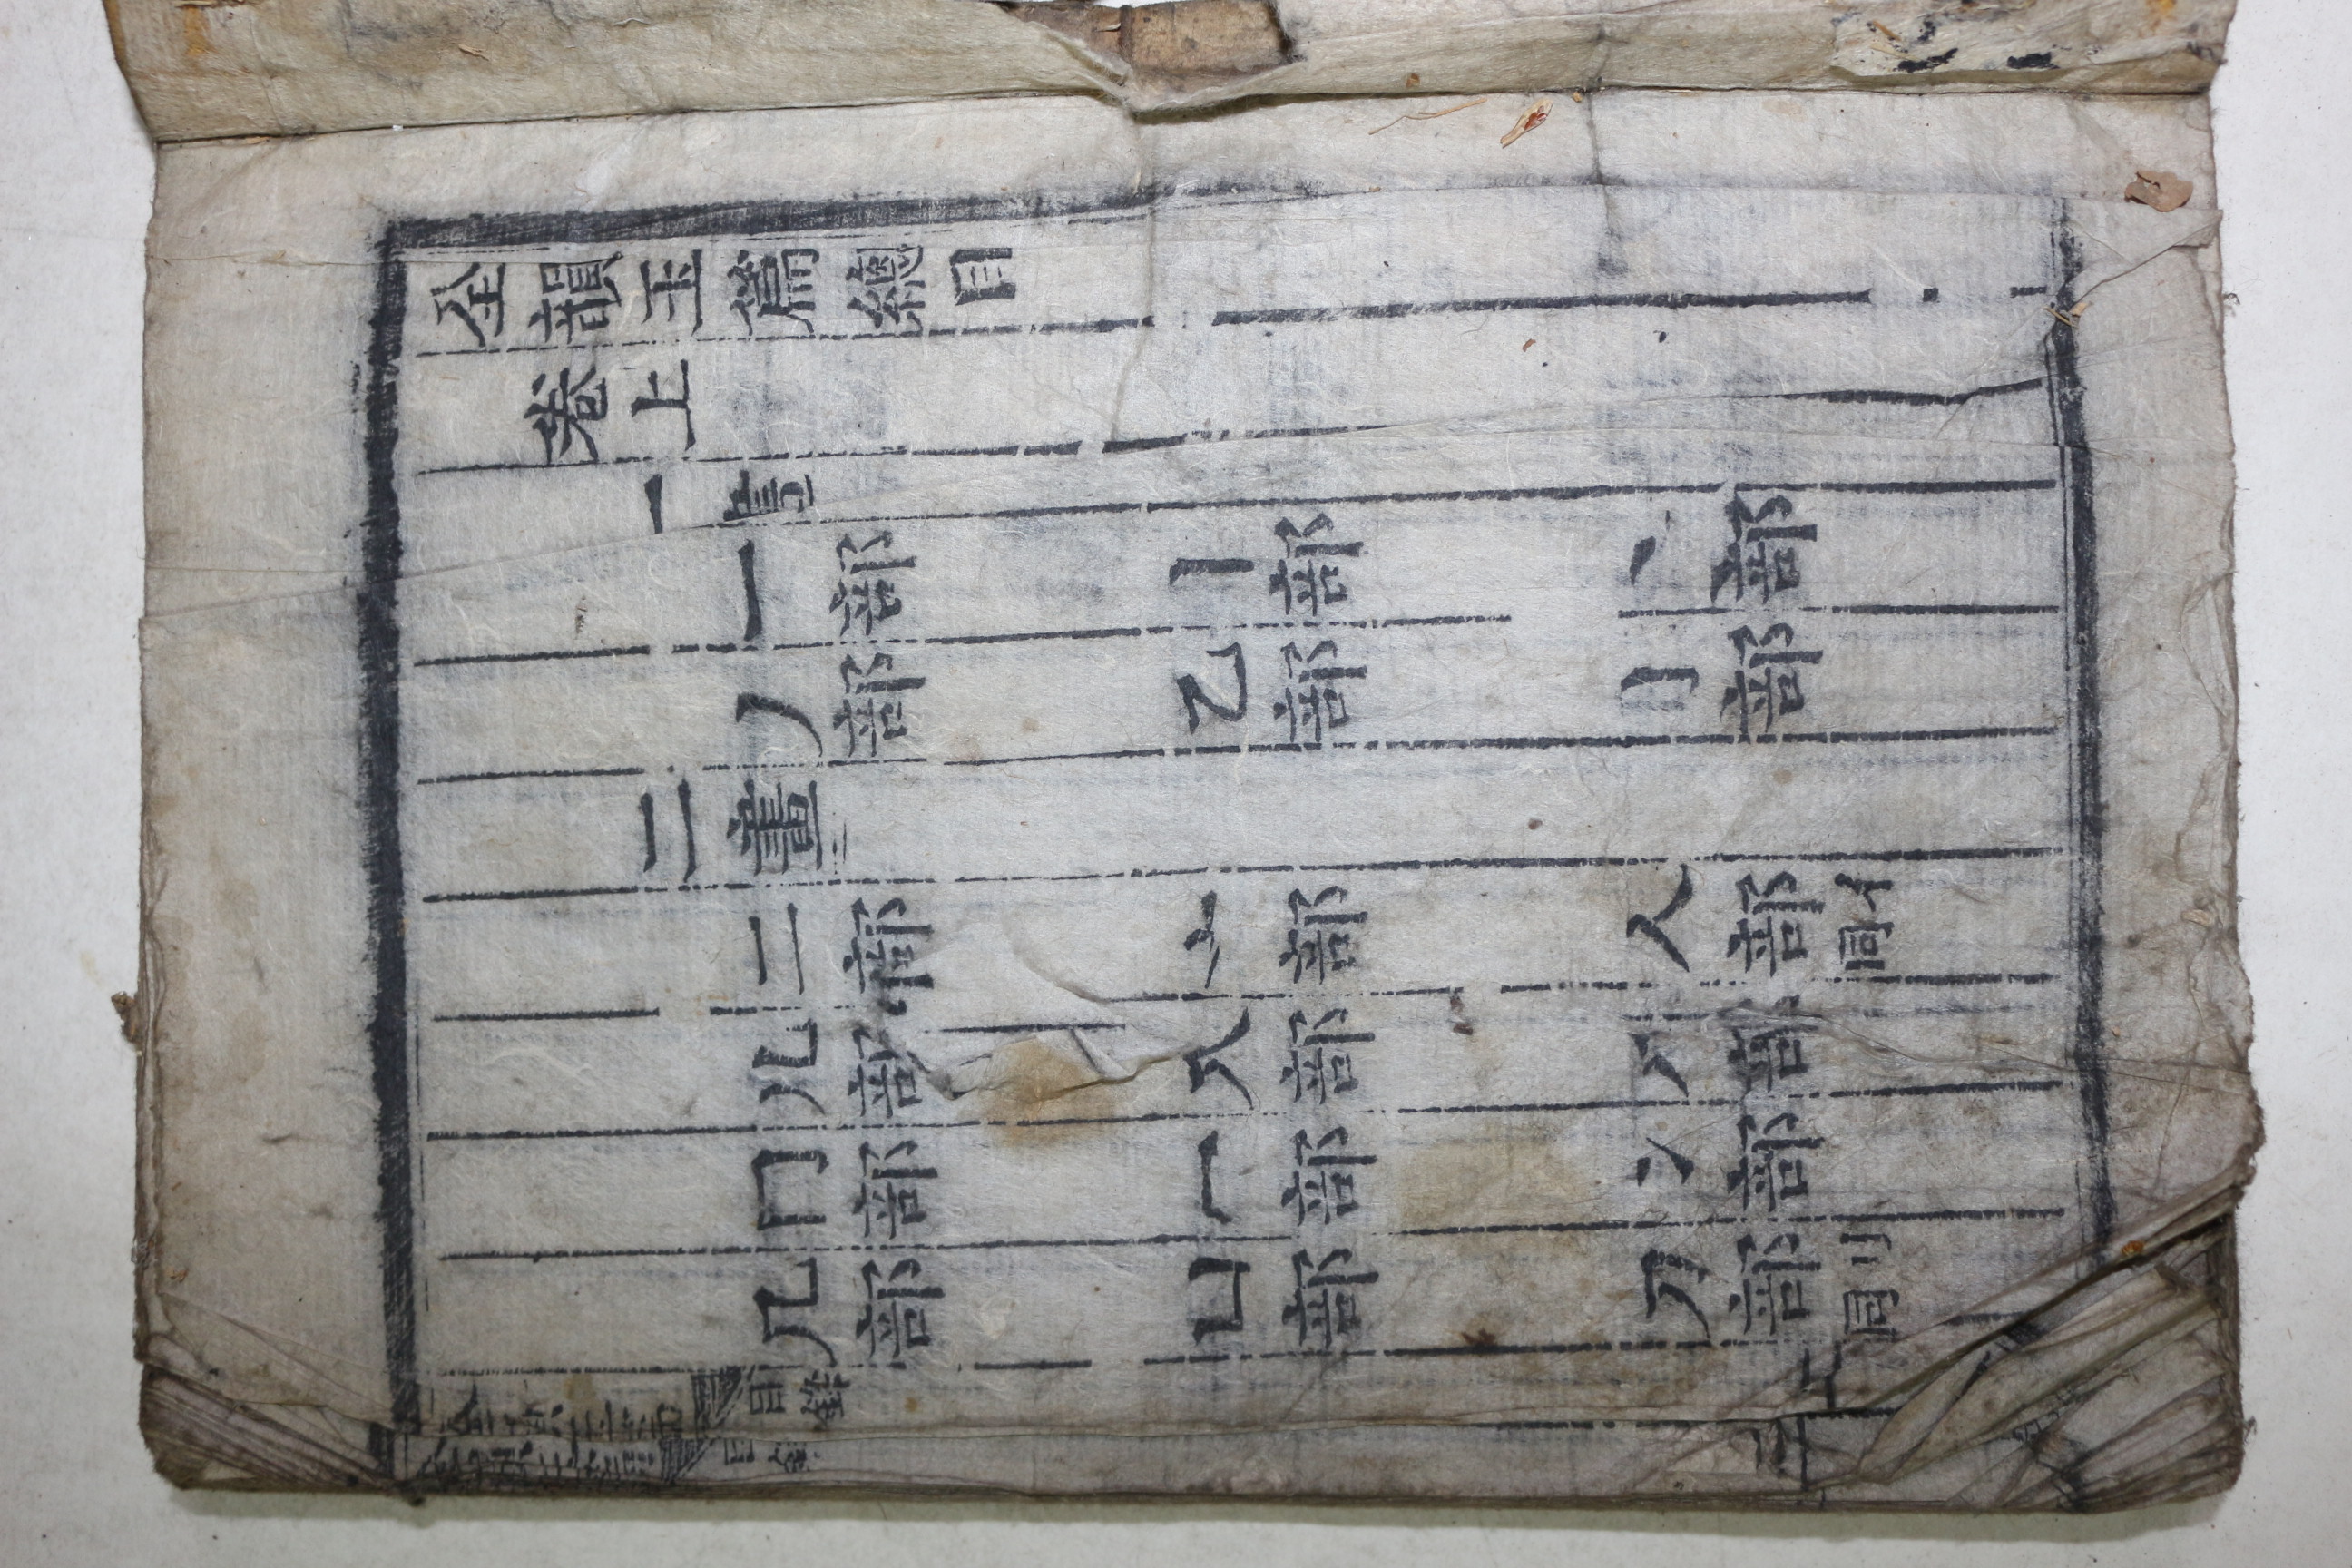 全韻玉篇總目
卷上
一畫
一部 丨部 丶部
丿部 乙部 亅部
二畫
二部 亠部 人部 亻同
儿部 入部 八部
冂部 冖部 冫部
几部 凵部 刀部 刂同
全韻玉篇 目錄